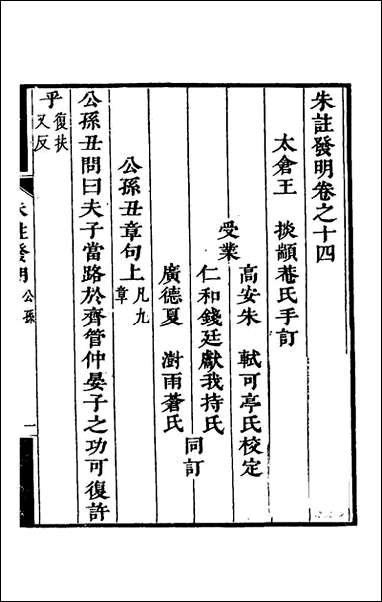 朱註發明卷之十四
太倉王 掞顓菴氏手訂
高安朱 軾可亭氏校定
受業
仁和錢廷獻我持氏
同訂
廣德夏 澍雨蒼氏
公孫丑章句上 凡九章
公孫丑問曰夫子當路於齊管仲晏子之功可復許
乎 復扶又反
朱註發明 公孫 一